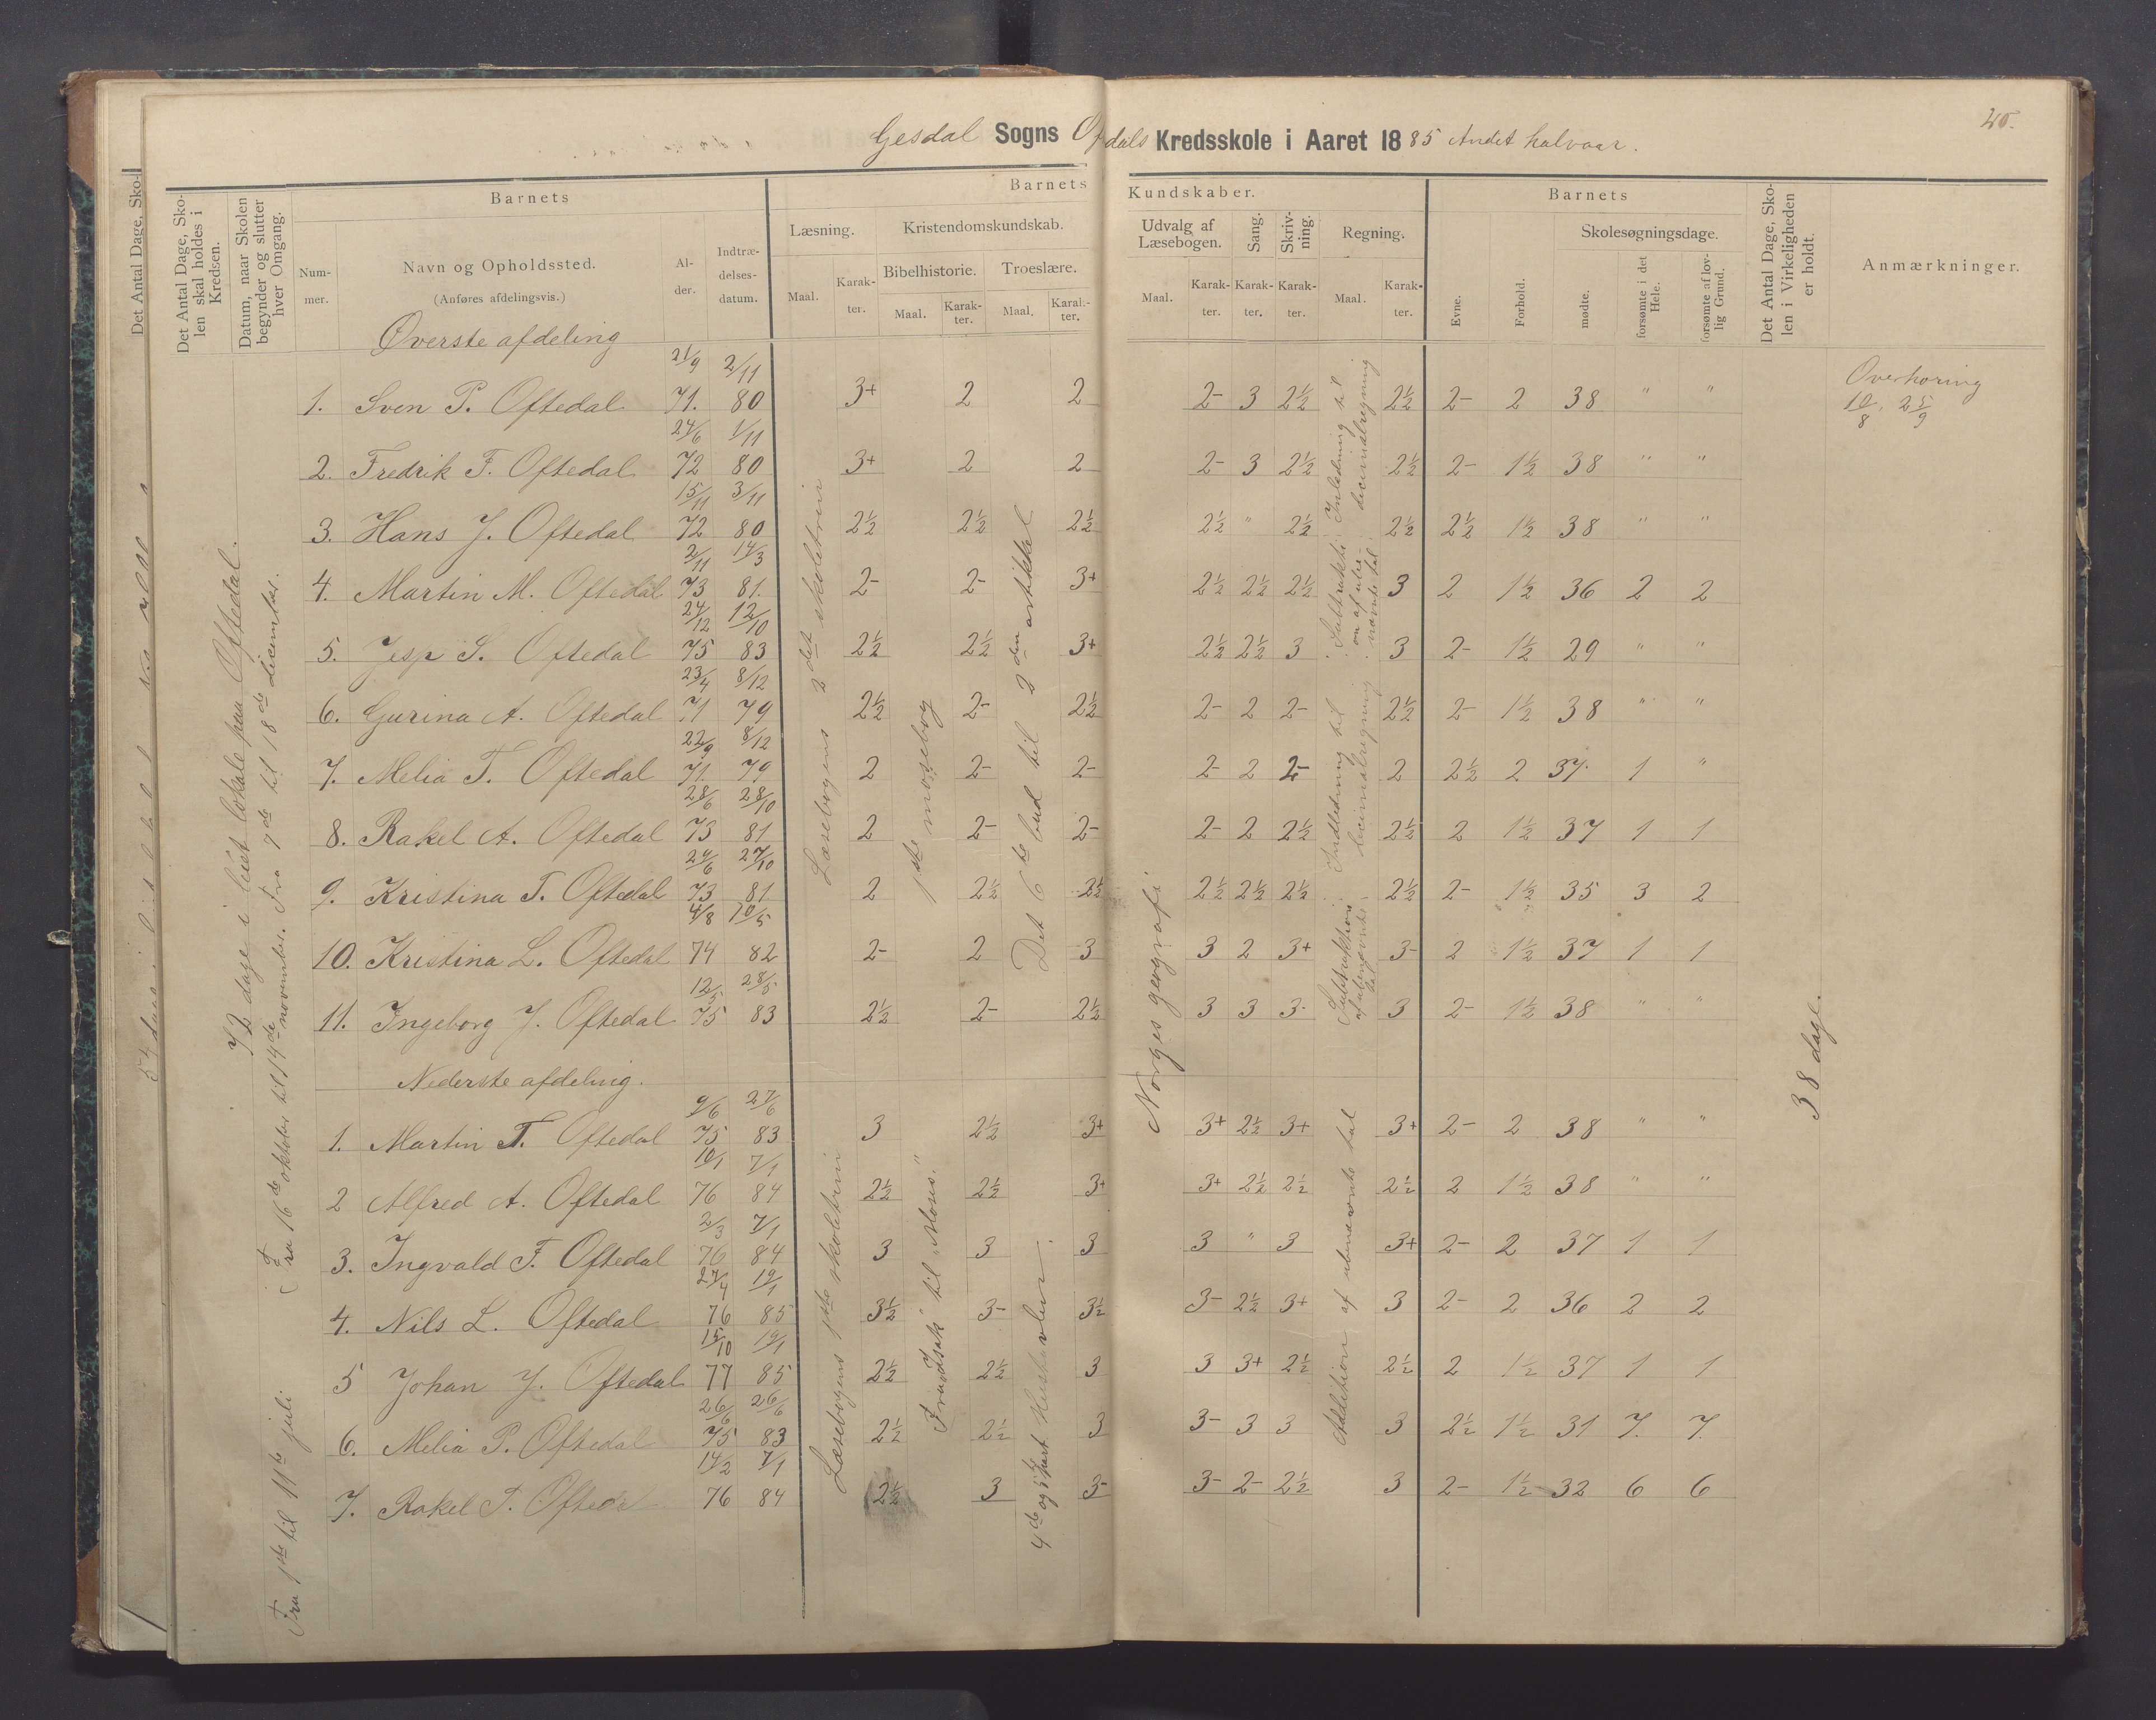 Gesdal Sogns Ofdals Kredsskole i Aaret 1885 Andet halvaar.
Det Antal Dage, Sko-
Det Antal Dage, Skolen skal holdes i Kredsen.
Datum, naar Skolen begynder og slutter hver Omgang.
Barnets
Nummer.
Navn og Opholdssted.
(Anføres afdelingsvis.)
Alder.
Indtrædelsesdatum.
Barnets Kundskaber.
Læsning.
Maal.
Karakter.
Kristendomskundskab.
Bibelhistorie.
Maal.
Karakter.
Troeslære.
Maal.
Karakter.
Udvalg af Læsebogen.
Maal.
Karakter.
Sang.
Karakter.
Skrivning.
Karakter.
Regning.
Maal.
Karakter.
Barnets
Evne.
Forhold.
Skolesøgningsdage.
mødte.
forsømte i det Hele.
forsømte af lovlig Grund.
Det Antal Dage, Skolen i Virkeligheden er holdt.
Anmærkninger.
72 dage i leiet lokale paa Oftedal.
Fra 1ste til 11te juli
Fra 16de oktober til 14de november. Fra 7de til 18de december.
Øverste afdeling
1. Sven P. Oftedal 21/9 71. 2/11 80 3+ 2 2 2- 3 2½ 2½ 2- 2 38 " "
Overhøring
10/8, 25/9
2. Fredrik F. Oftedal 24/6 72 1/11 80 3+ 2 2 2- 3 2½ 2½ 2- 1½ 38 " "
3. Hans J. Oftedal 15/11 72 3/11 80 2½ 2½ 2½ 2½ " 2½ 2½ 2½ 1½ 38 " "
4. Martin M. Oftedal 2/11 73 14/3 81. 2- 2- 3+ 2½ 2½ 2½ 3 2 1½ 36 2 2
5. Jesp S. Oftedal 24/12 75 12/10 83 2½ 2½ 3+ 2½ 2½ 3 3 2- 1½ 29 " "
6. Gurina A. Oftedal 23/4 71 8/12 79 2½ 2- 2½ 2- 2 2- 2½ 2- 1½ 38 " "
7. Melia T. Oftedal 22/9 71. 8/12 79 2 2- 2- 2- 2 2- 2 2½ 2 37 1 "
8. Rakel A. Oftedal 28/6 73 28/10 81 2 2- 2- 2- 2 2½ 2½ 2 1½ 37 1 1
9. Kristina T. Oftedal 24/6 73 27/10 81 2 2½ 2½ 2½ 2½ 2½ 2½ 2- 1½ 35 3 2
10. Kristina L. Oftedal 4/8 74 10/5 82 2- 2 3 3 2 3+ 3- 2 1½ 37 1 1
11. Ingeborg J. Oftedal 12/5 75 28/5 83 2½ 2- 2½ 3 3 3- 3 2- 1½ 38 " "
Læsebogens 2det skoletrin
1ste mosebog
Det 6te bud til 2den artikkel
Norges geografi
Indledning til decimalregning
38 dage.
Nederste afdeling.
1. Martin T. Oftedal 9/6 75 27/6 83 3 2½ 3+ 3+ 2½ 3+ 3+ 2- 2 38 " "
2 Alfred A. Oftedal 10/1 76 7/1 84 2½ 2½ 3+ 3+ 2½ 2½ 2½ 2 1½ 38 " "
3. Ingvald F. Oftedal 2/3 76 7/1 84 3 3 3 3 " 3 3+ 2- 2 37 1 1
4. Nils L. Oftedal 27/4 76 19/1 85 3½ 3- 3½ 3- 2½ 3+ 3 2- 2 36 2 2
5 Johan J. Oftedal 15/10 77 19/1 85 2½ 2½ 3 3 3+ 2½ 2½ 2 1½ 37 1 1
6. Melia P. Oftedal 26/6 75 26/6 83 2½ 2½ 3 3- 3 3 3 2½ 1½ 31 7. 7.
7. Rakel T. Oftedal 14/2 76 7/1 84 2½ 3 3- 3- 2- 2½ 3 2- 1½ 32 6 6
Læsebogens 1ste skoletrin
Fra „Isak" til „Moses."
Addition af ubenævnte tal